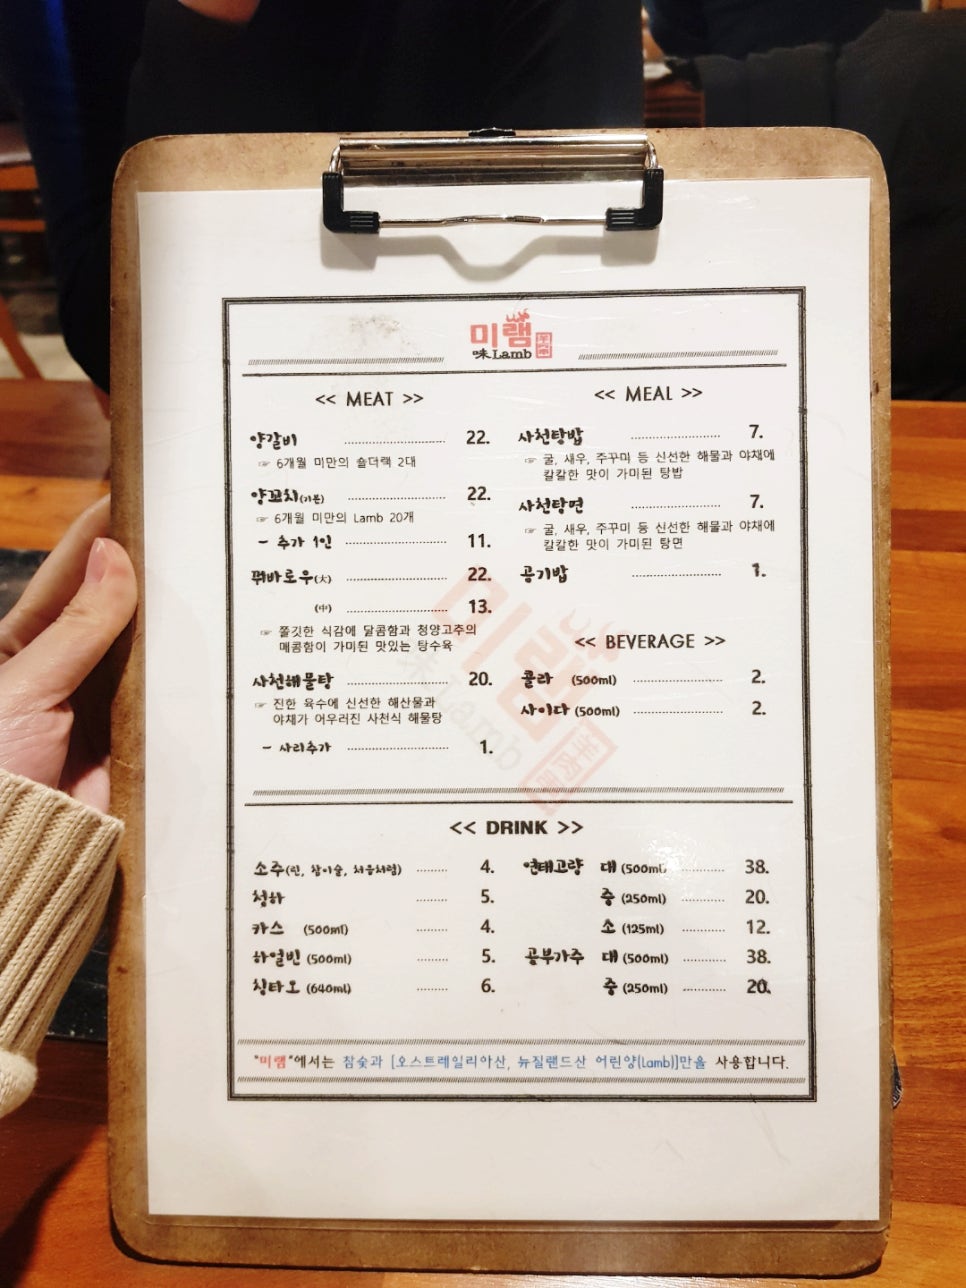 미램
味Lamb
<< MEAT >>
양갈비 22.
☞ 6개월 미만의 숄더랙 2대
양꼬치(기본) 22.
☞ 6개월 미만의 Lamb 20개
- 추가 1인 11.
꿔바로우(大) 22.
(中) 13.
☞ 쫄깃한 식감에 달콤함과 청양고추의
매콤함이 가미된 맛있는 탕수육
사천해물탕 20.
☞ 진한 육수에 신선한 해산물과
야채가 어우러진 사천식 해물탕
- 사리추가 1.
<< MEAL >>
사천탕밥 7.
☞ 굴, 새우, 주꾸미 등 신선한 해물과 야채에
칼칼한 맛이 가미된 탕밥
사천탕면 7.
☞ 굴, 새우, 주꾸미 등 신선한 해물과 야채에
칼칼한 맛이 가미된 탕면
공기밥 1.
<< BEVERAGE >>
콜라 (500ml) 2.
사이다 (500ml) 2.
<< DRINK >>
소주(린, 참이슬, 처음처럼) 4.
청하 5.
카스 (500ml) 4.
하얼빈 (500ml) 5.
칭타오 (640ml) 6.
연태고량 대 (500ml) 38.
중 (250ml) 20.
소 (125ml) 12.
공부가주 대 (500ml) 38.
중 (250ml) 20.
"미램"에서는 참숯과 [오스트레일리아산, 뉴질랜드산 어린양(Lamb)]만을 사용합니다.